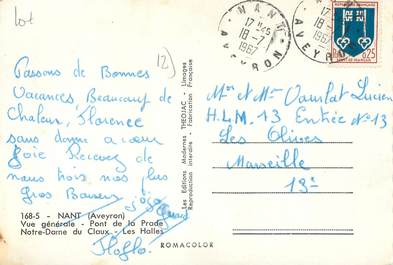 Lot
12)
NANT
17H45
18-7
1967
AVEYRON
NANT
17
18-7
1967
AVEYRON
0,25
Passons de Bonnes
Vacances, Beaucoup de
Chaleur, Florence
sans donne a cœur
Joie Recevez de
nous trois nos plus
Gros Baisers
Floflo
168-5 - NANT (Aveyron)
Vue générale - Pont de la Prade
Notre-Dame du Claux - Les Halles
Les Editions Modernes THEOJAC - Limoges
Reproduction interdite - Fabrication Française
ROMACOLOR
Mr et Mme Lucien
H.L.M. 13 Entrée N°13
Les Olives
Marseille
13e